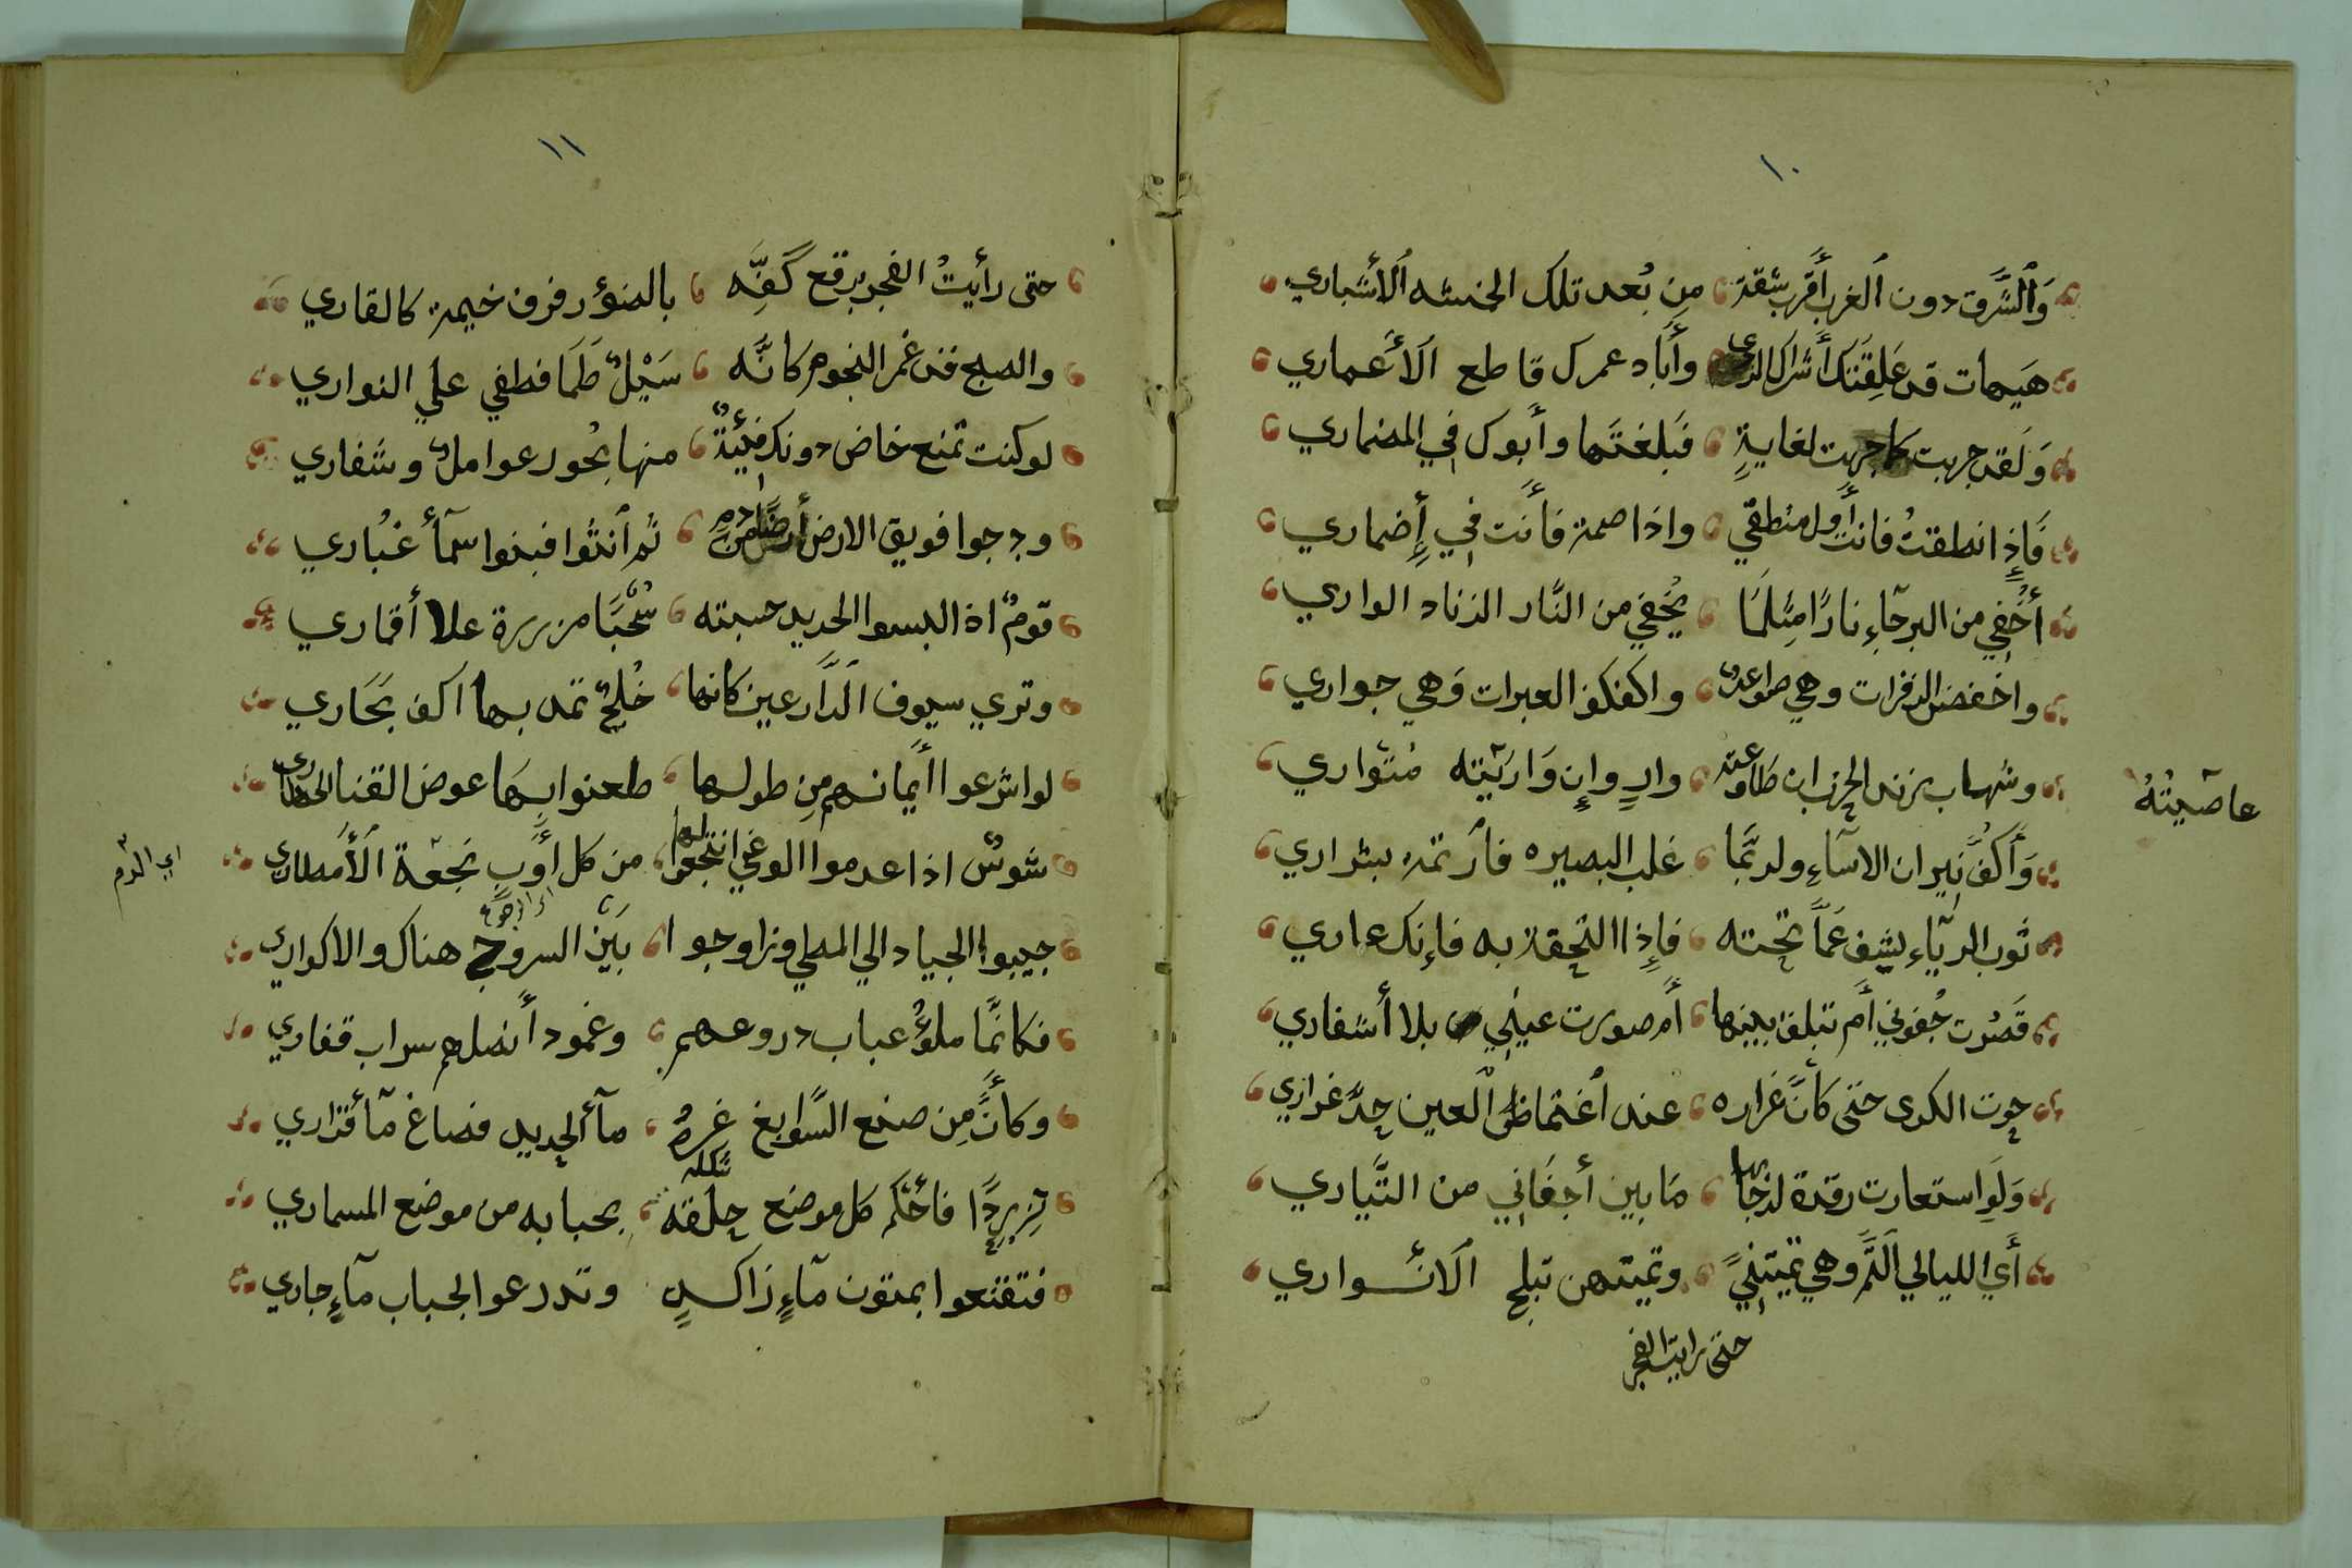 ١٠
وَٱلشَّرق دون ٱلغرب أَقرب شقة مِن بُعد تلك الخمسه ٱلأشباري
هَيهات قد عَلِقَتكَ أَشراك الردى وأَباد عمرك قاطع الأَعماري
وَلَقد جريت كما جريت لغايةٍ فَبلغتَها وأَبوك في المضماري
فَإِذا نطقتُ فانت أَول منطقي واذا صمت فأَنت في إِضماري
أُخْفِي من البرحآءِ نارًا مِثلَمَا يُخفي من النَّار الزناد الواري
واخفض الزفرات وهي صواعدٌ واكفكف العبرات وَهي جواري
وشهاب زند الحزن ان طَاوعته وارٍ وإِن وَاريته متَواري
عاصَيتُهُ
وَأَكُفُّ نيران الاسآءِ ولربَّما غلب البصيره فأرتمه بشراري
ثوب الريآءِ يشف عَمَّا تحته فإِذا التحقة به فإنك عاري
قَصُرت جُفوني أَم تبلغ بينها أَم صورت عيني بلا أَشفاري
جوت الكرى حتى كأَنَّ غراره عند ٱغتماظ ٱلعين حدَّ غراري
وَلَو استعارت رقدة لزجابها مَا بين أَجفَاني من التَّياري
أَي الليالي ٱلتَّم وهي تميتنِيً وتميتهن تبلج الانــواري
حتى رايت الفجر
١١
حتى رأَيتُ الفجر يرقع كَفِّه بالضؤ رفرف خيمة كالقاري
والصبح قد غمر النجوم كانَّه سَيْلٌ طَمَا فطفي علي النواري
لو كنت تمنع خاض دونك فِئيةٌ منها بحُور عواملٌ وشفاري
ودجوا فويق الارض أَرضًا من دمٍ ثم ٱنثُوا فبنوا سمآء غُباري
قومٌ اذا لبسوا الحديد حسبته سُحُبًا مزررة علا أَقماري
وتري سيوف ٱلدَّارعين كانها خُلجٌ تمد بها اكف بَحَاري
لو اشرعوا أَيمانهم مِن طولها طعنوا بِهَا عوض القنا الخطاري
شوسٌ اذا عدموا الوغي انتجعوا لها من كل أَوبٍ نجعَة ٱلأَمطاري
اي الدم
جيبوا الجياد الي المطي وزاوجوا بَيْن السروج هناك والاكواري
فكأنَّما ملؤُ عباب دروعهم وغمود أَنصلهم سراب قفاري
وكأَنَّ مِن صنع السَّوابغ غرهُ مآء الحديد فصاغ مآ أَقراري
تزررًا فأَحكم كل موضع حلقه بحبابه من موضع المسماري
فتقنعوا بمتون مآءٍ زاكــدٍ وتدرعو الجباب مآءٍ جاري